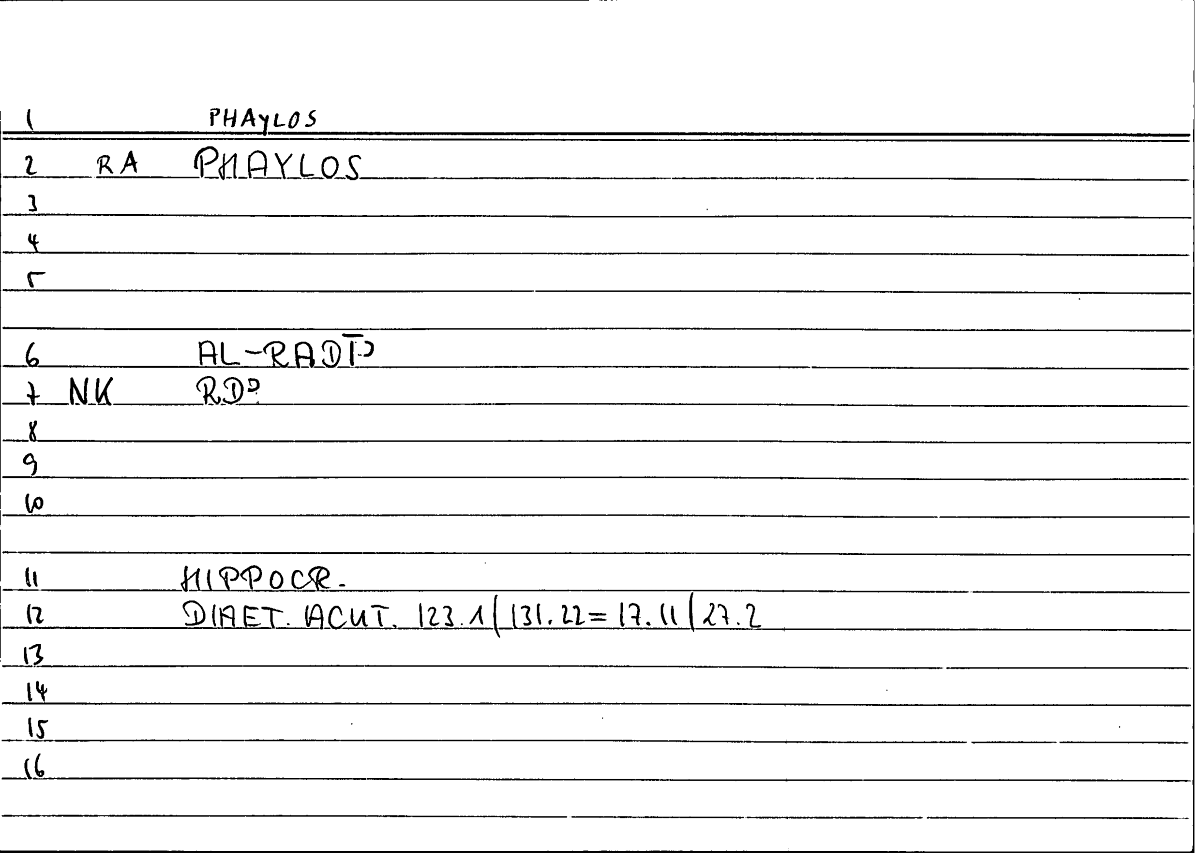 1 PHAYLOS
2 RA PHAYLOS
3
4
5
6 AL-RADĪʾ
7 NK RDʾ
8
9
10
11 HIPPOCR.
12 DIAET. ACUT. 123.1/131.22=17.11/27.2
13
14
15
16